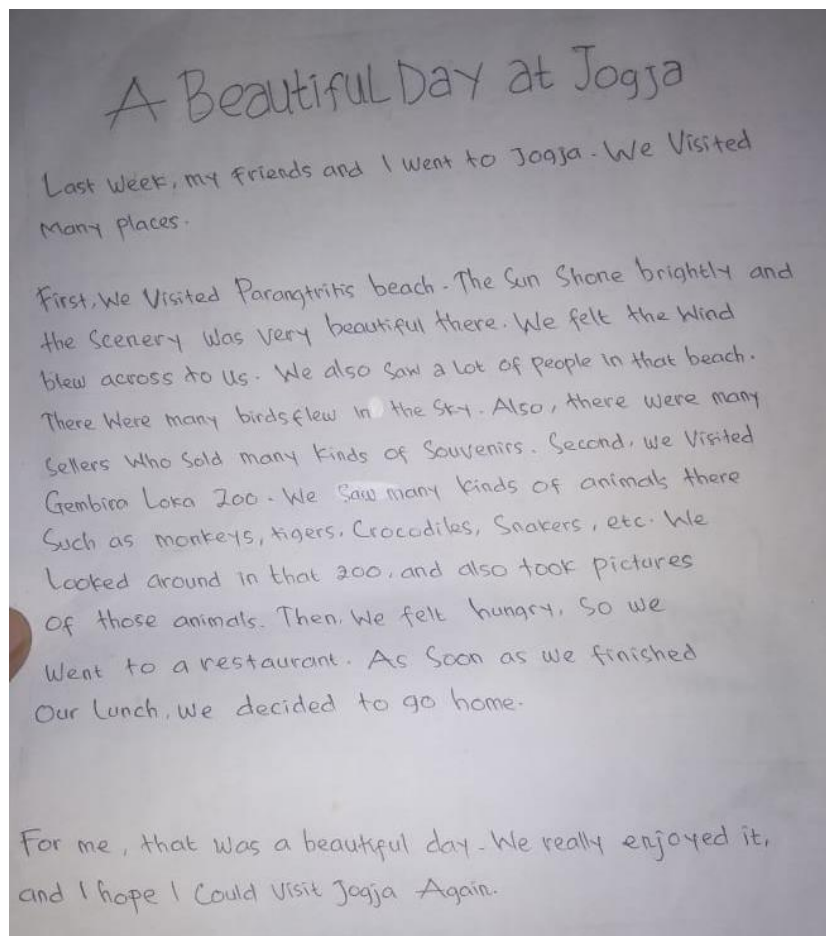 A Beautiful Day at Jogja
Last Week, my friends and I went to Jogja. We Visited
Many places.
First, We Visited Parangtritis beach. The Sun Shone brightly and
the Scenery Was very beautiful there. We felt the Wind
blew across to us. We also Saw a lot of people in that beach.
There Were many birds flew in the Sky. Also, there were many
Sellers Who Sold many kinds of Souvenirs. Second, we Visited
Gembira Loka Zoo. We Saw many kinds of animals there
Such as monkeys, tigers, Crocodiles, Snakers, etc. We
Looked around in that zoo, and also took pictures
Of those animals. Then, We felt hungry, So we
Went to a restaurant. As Soon as we finished
Our Lunch, we decided to go home.
For me, that was a beautiful day. We really enjoyed it,
and I hope I Could Visit Jogja Again.